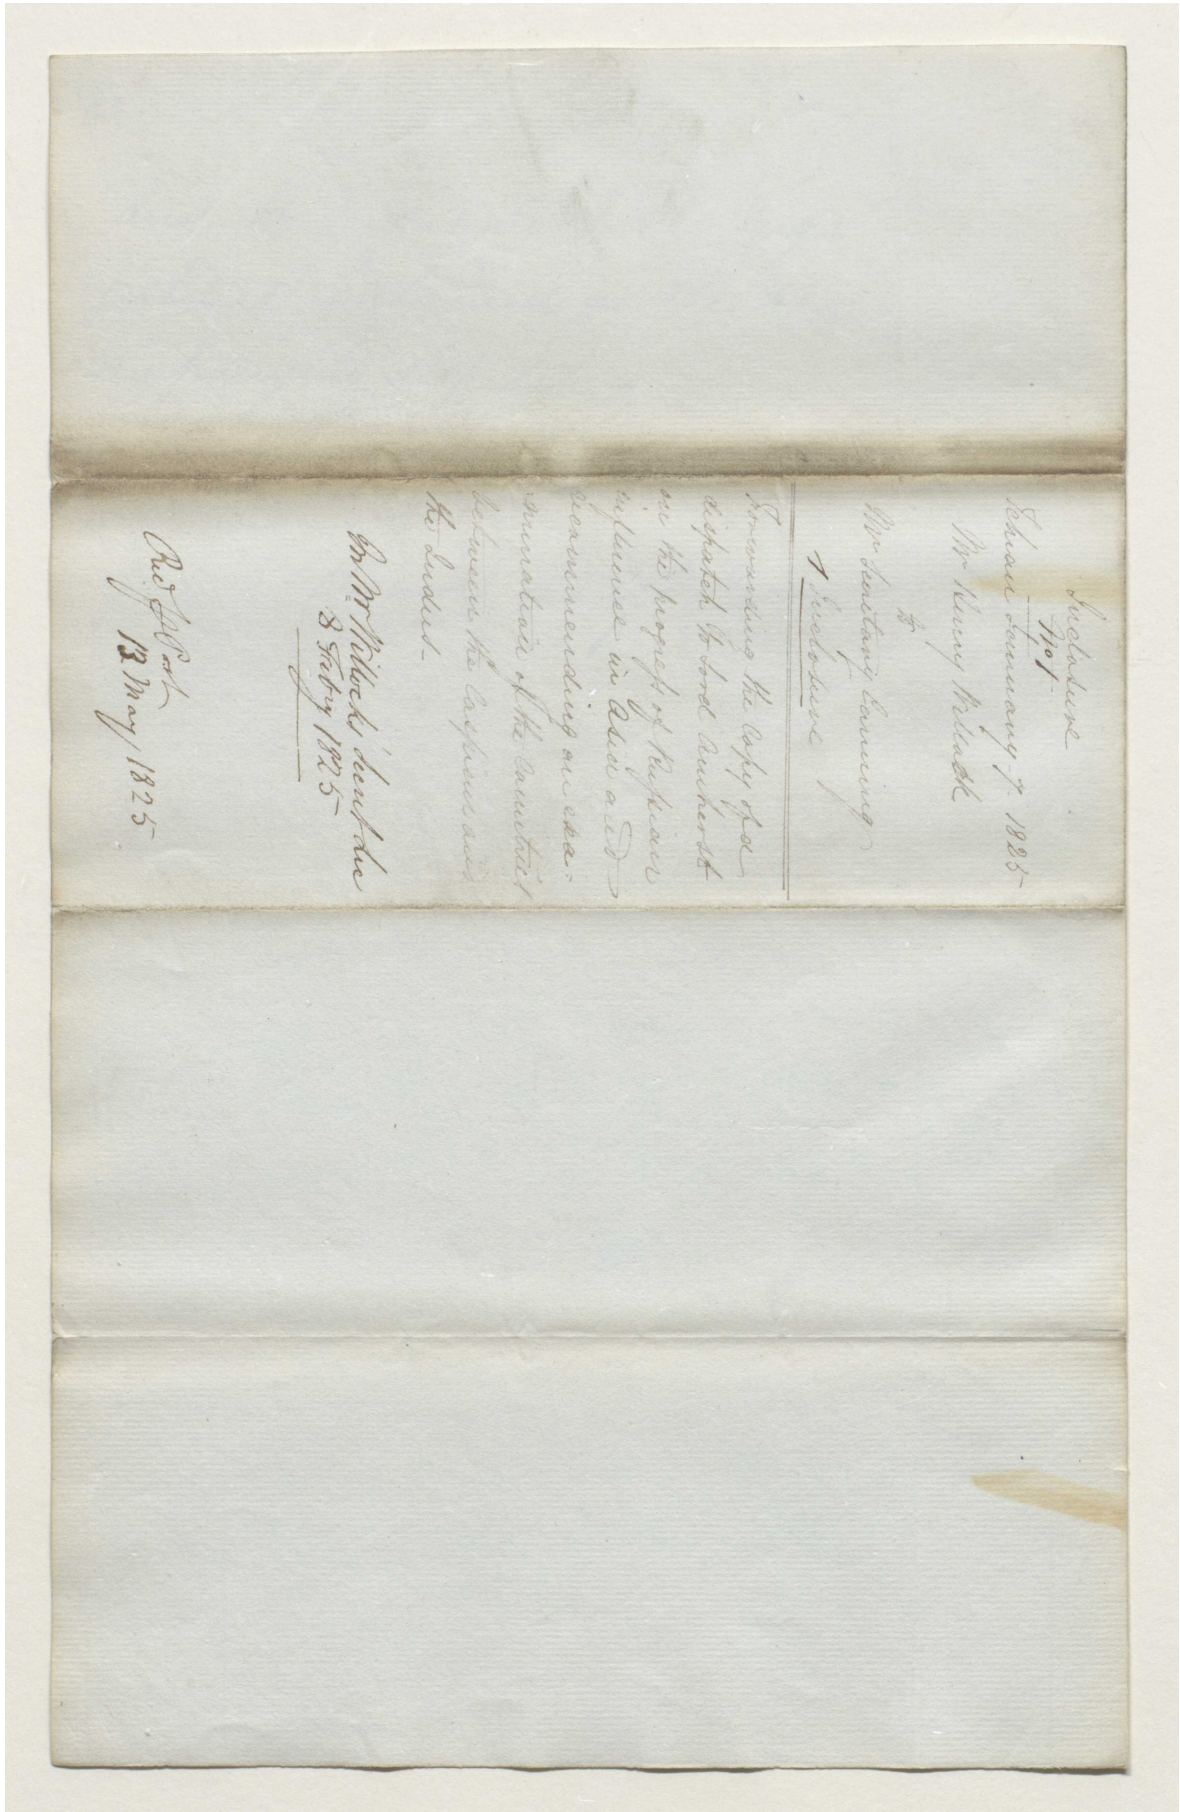 Inclosure
No 1
Tehran January 7. 1825
Mr Henry Willock
to
Mr Secretary Canning
1 Inclosure
Forwarding the Copy of a
dispatch to Lord Amherst
on the progress of Russian
influence in Asia and
recommending an exa-
mination of the Countries
between the Caspian and
the Indus.
In Mr Willock's Secret
8 Febry 1825
Recd Post
13 May 1825